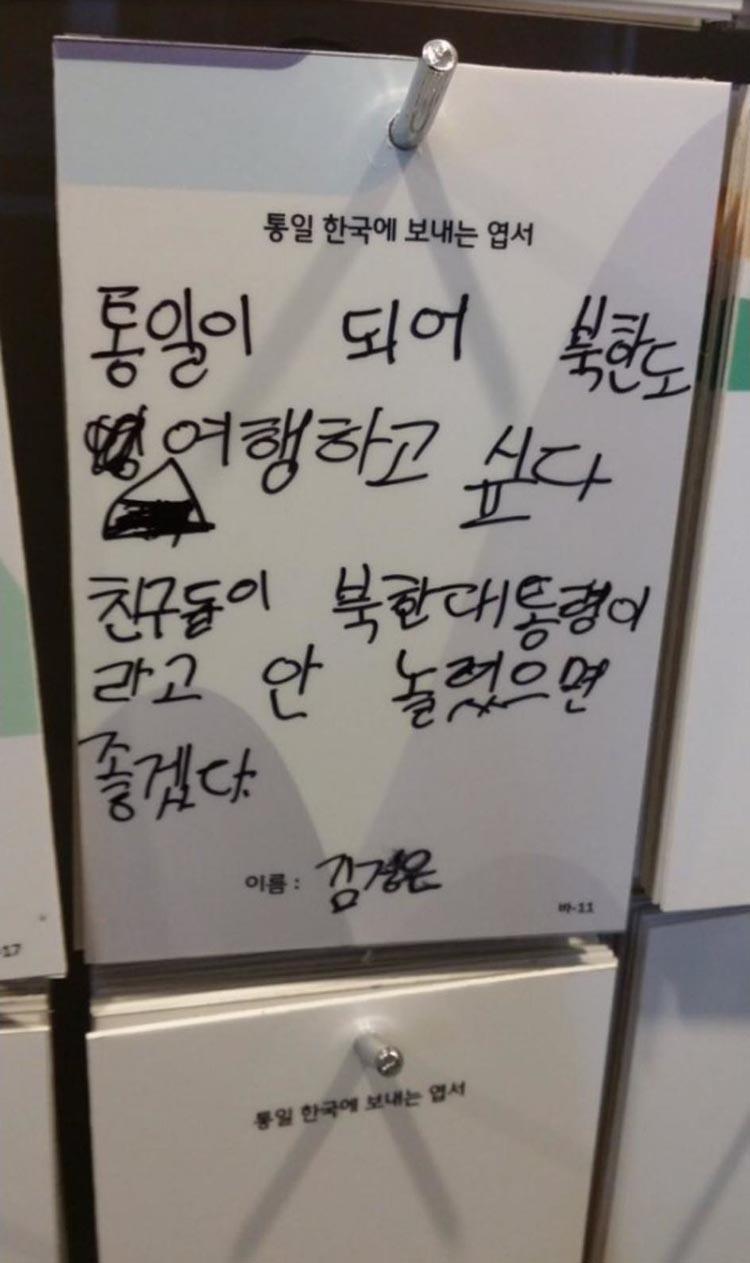 통일 한국에 보내는 엽서
통일이 되어 북한도
여행하고 싶다
친구들이 북한대통령이
라고 안 놀렸으면
좋겠다.
이름 : 김정은
바-11
-17
통일 한국에 보내는 엽서